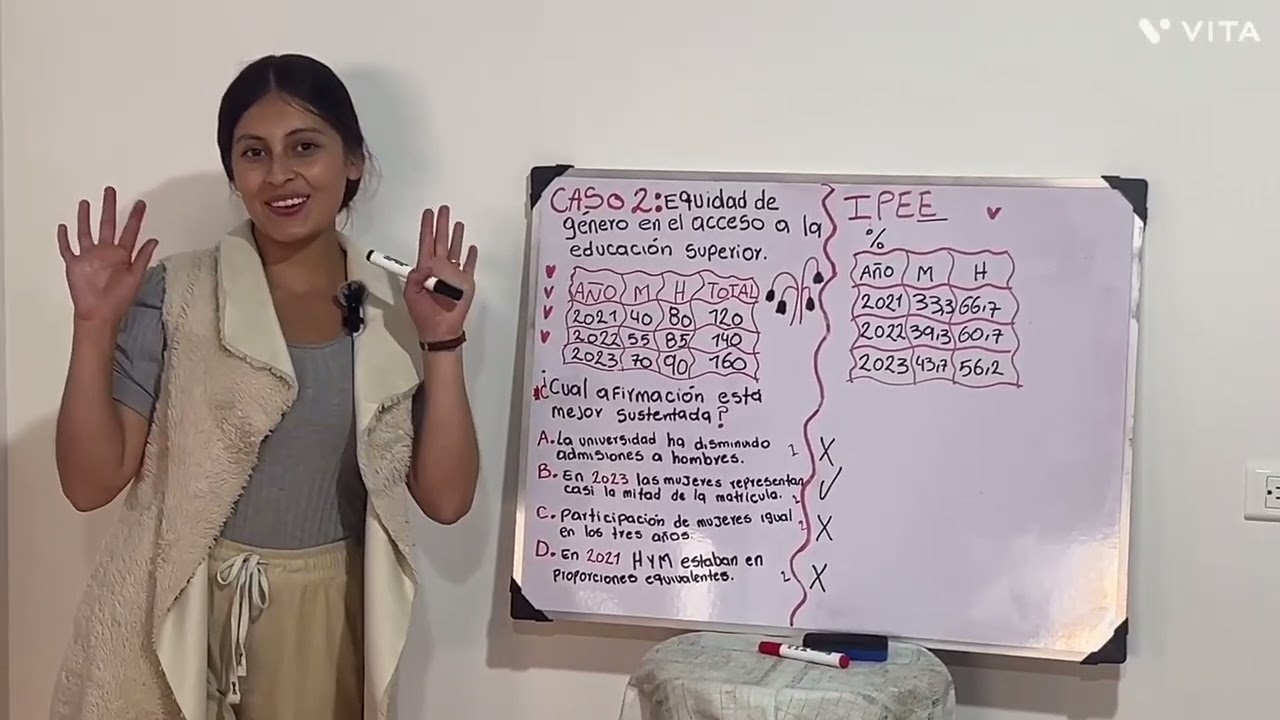 VITA
CASO 2: Equidad de
género en el acceso a la
educación superior.
AÑO M H TOTAL
2021 40 80 120
2022 55 85 140
2023 70 90 160
¿Cual afirmación está
mejor sustentada?
A. La universidad ha disminuido
admisiones a hombres.
B. En 2023 las mujeres representan
casi la mitad de la matrícula.
C. Participación de mujeres igual
en los tres años.
D. En 2021 H y M estaban en
proporciones equivalentes.
IPEE
%
AÑO M H
2021 33,3 66,7
2022 39,3 60,7
2023 43,7 56,2